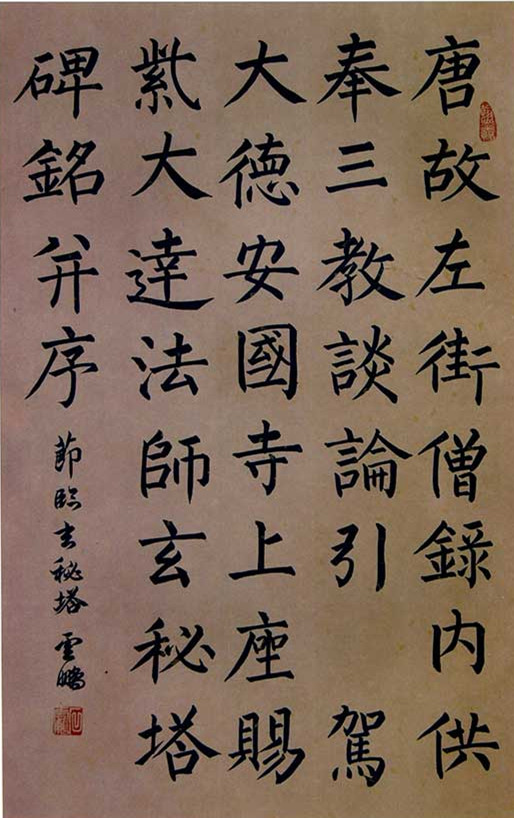 唐故左街僧錄内供
奉三教談論引駕
大德安國寺上座賜
紫大達法師玄秘塔
碑銘并序
節臨玄秘塔 雲鵬